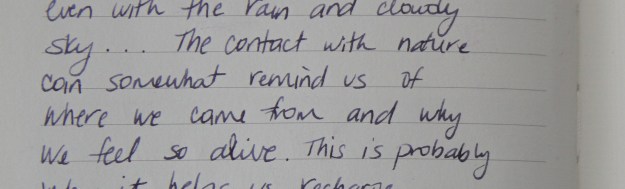 even with the rain and cloudy
sky... The contact with nature
can somewhat remind us of
where we came from and why
we feel so alive. This is probably
why it helps us recharge